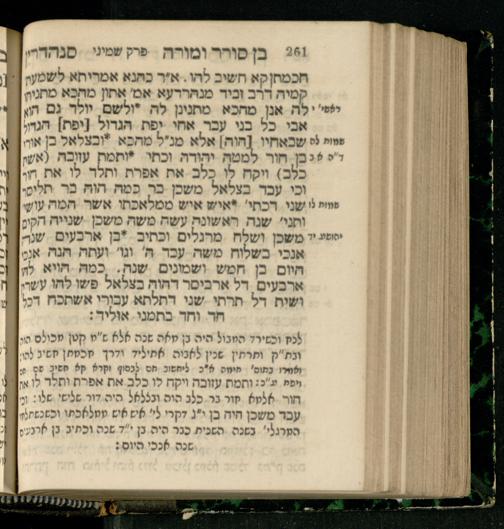 261 בן סורר ומורה פרק שמיני סנהדרין
חכמתן קא חשיב להו. א״ר כהנא אמריתא לשמעת
קמיה דרב זביד מנהרדעא אמ׳ אתון מהכא מתניתו
ראשי׳ י לה אנן מהכא מתנינן לה *ולשם יולד גם הוא
אבי כל בני עבר אחי יפת הגדול [יפת] הגדול
שמות לה שבאחיו [הוה] אלא מנ״ל מהכא *ובצלאל בן אורי
ד״ה א ב בן חור למטה יהודה וכתי׳ *ותמת עזובה (אשת
כלב) ויקח לו כלב את אפרת ותלד לו את חור
וכי עבד בצלאל משכן בר כמה הוה בר תליסר
שמות לו שני דכתי׳ *איש איש ממלאכתו אשר המה עושי׳
ותני׳ שנה ראשונה עשה משה משכן שנייה הקים
יהושע יד משכן ושלח מרגלים וכתיב *בן ארבעים שנה
אנכי בשלוח משה עבד ה׳ וגו׳ ועתה הנה אנכי
היום בן חמש ושמונים שנה. כמה הויא להו
ארבעים דל ארביסר דהוה בצלאל פשו להו עשרה
ושית דל תרתי שני דתלתא עבורי אשתכח דכל
חד וחד בתמני אוליד:
היה בן מאה שנה אלא ש״מ קטן מכולם הוה
ותמת עזובה ויקח לו כלב את אפרת ותלד לו את
חור אלמא חור בר כלב היה
עבד משכן היה בן י״ג דקרי לי׳ איש איש ממלאכתו
המרגלי׳ בשנה השנית כבר היה בן י״ד שנה וכתיב בן ארבעים
שנה אנכי היום: